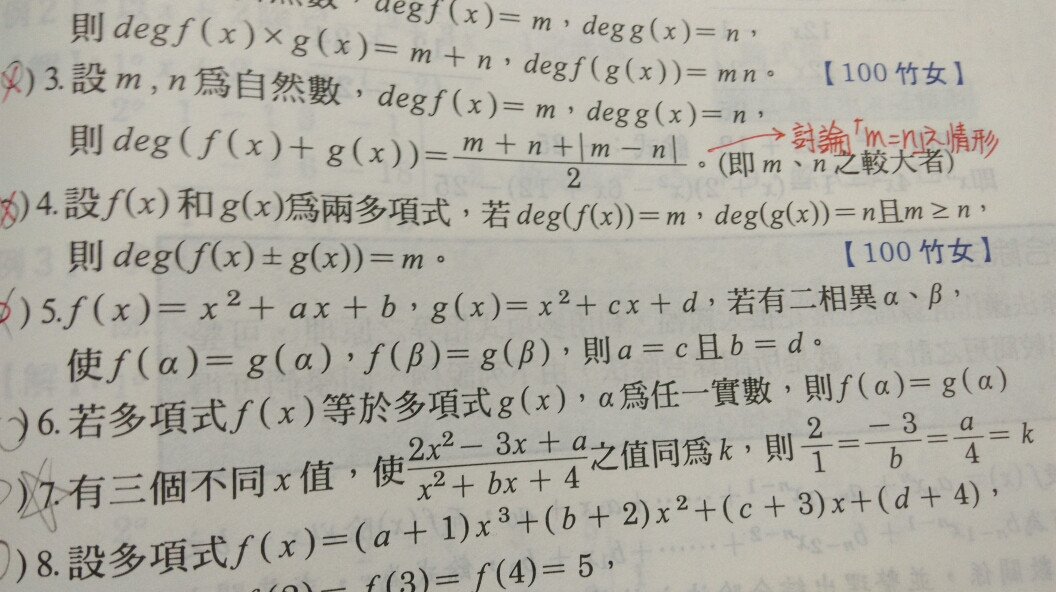 degf(x)=m，degg(x)=n，
則degf(x)×g(x)=m+n，degf(g(x))=mn。 【100竹女】
)3.設m,n為自然數，degf(x)=m，degg(x)=n，
則deg(f(x)+g(x))=\frac{m+n+|m-n|}{2}。(即m、n之較大者)
討論「m=n」之情形
)4.設f(x)和g(x)為兩多項式，若deg(f(x))=m，deg(g(x))=n且m≥n，
則deg(f(x)±g(x))=m。 【100竹女】
)5.f(x)=x²+ax+b，g(x)=x²+cx+d，若有二相異α、β，
使f(α)=g(α)，f(β)=g(β)，則a=c且b=d。
)6.若多項式f(x)等於多項式g(x)，α為任一實數，則f(α)=g(α)
)7.有三個不同x值，使\frac{2x²-3x+a}{x²+bx+4}之值同為k，則\frac{2}{1}=\frac{-3}{b}=\frac{a}{4}=k
)8.設多項式f(x)=(a+1)x³+(b+2)x²+(c+3)x+(d+4)，
f(3)=f(4)=5，